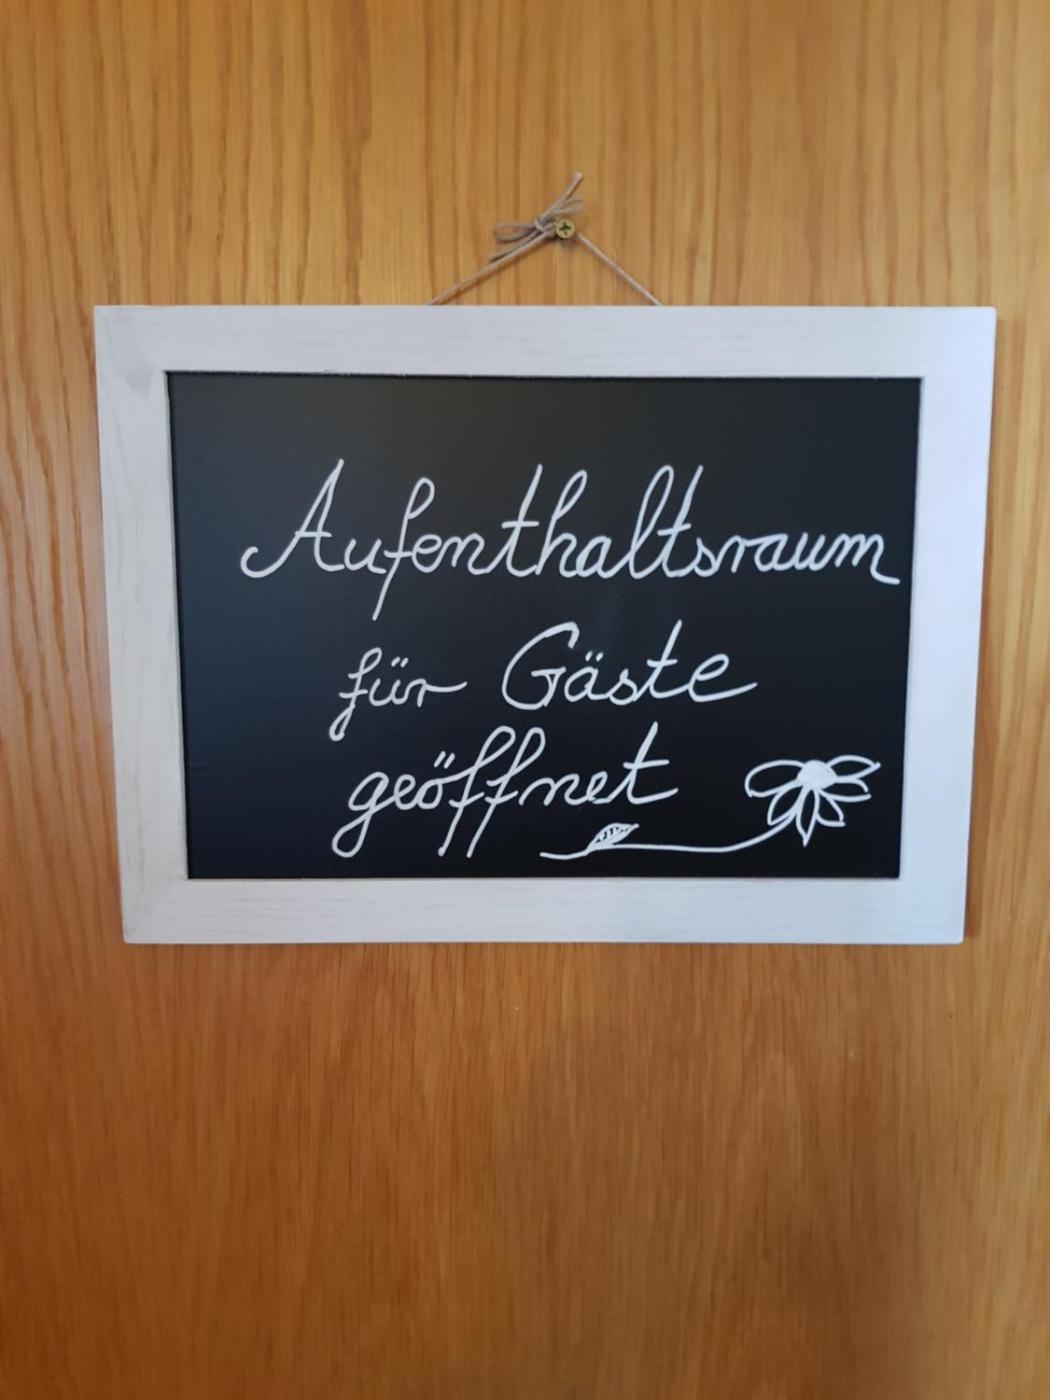 Aufenthaltsraum
für Gäste
geöffnet